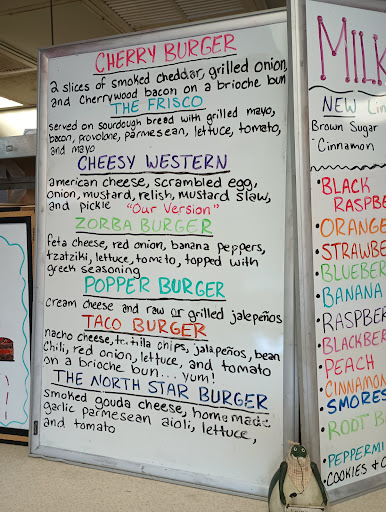 CHERRY BURGER
2 slices of smoked cheddar, grilled onion,
and Cherrywood bacon on a brioche bun
THE FRISCO
served on sourdough bread with grilled mayo,
bacon, provolone, parmesean, lettuce, tomato,
and mayo
CHEESY WESTERN
american cheese, scrambled egg,
onion, mustard, relish, mustard slaw,
and pickle "Our Version"
ZORBA BURGER
feta cheese, red onion, banana peppers,
tzatziki, lettuce, tomato, topped with
greek seasoning
POPPER BURGER
cream cheese and raw or grilled jalepeños
TACO BURGER
nacho cheese, tortilla chips, jalapeños, bean
chili, red onion, lettuce, and tomato
on a brioche bun... yum!
THE NORTH STAR BURGER
smoked gouda cheese, homemade
garlic parmesean aioli, lettuce,
and tomato
MILK
NEW
Brown Sugar
Cinnamon
•BLACK
•ORANGE
•BLUEBERR
•BANANA
•PEACH
•CINNAMON
•SMORES
•COOKIES &